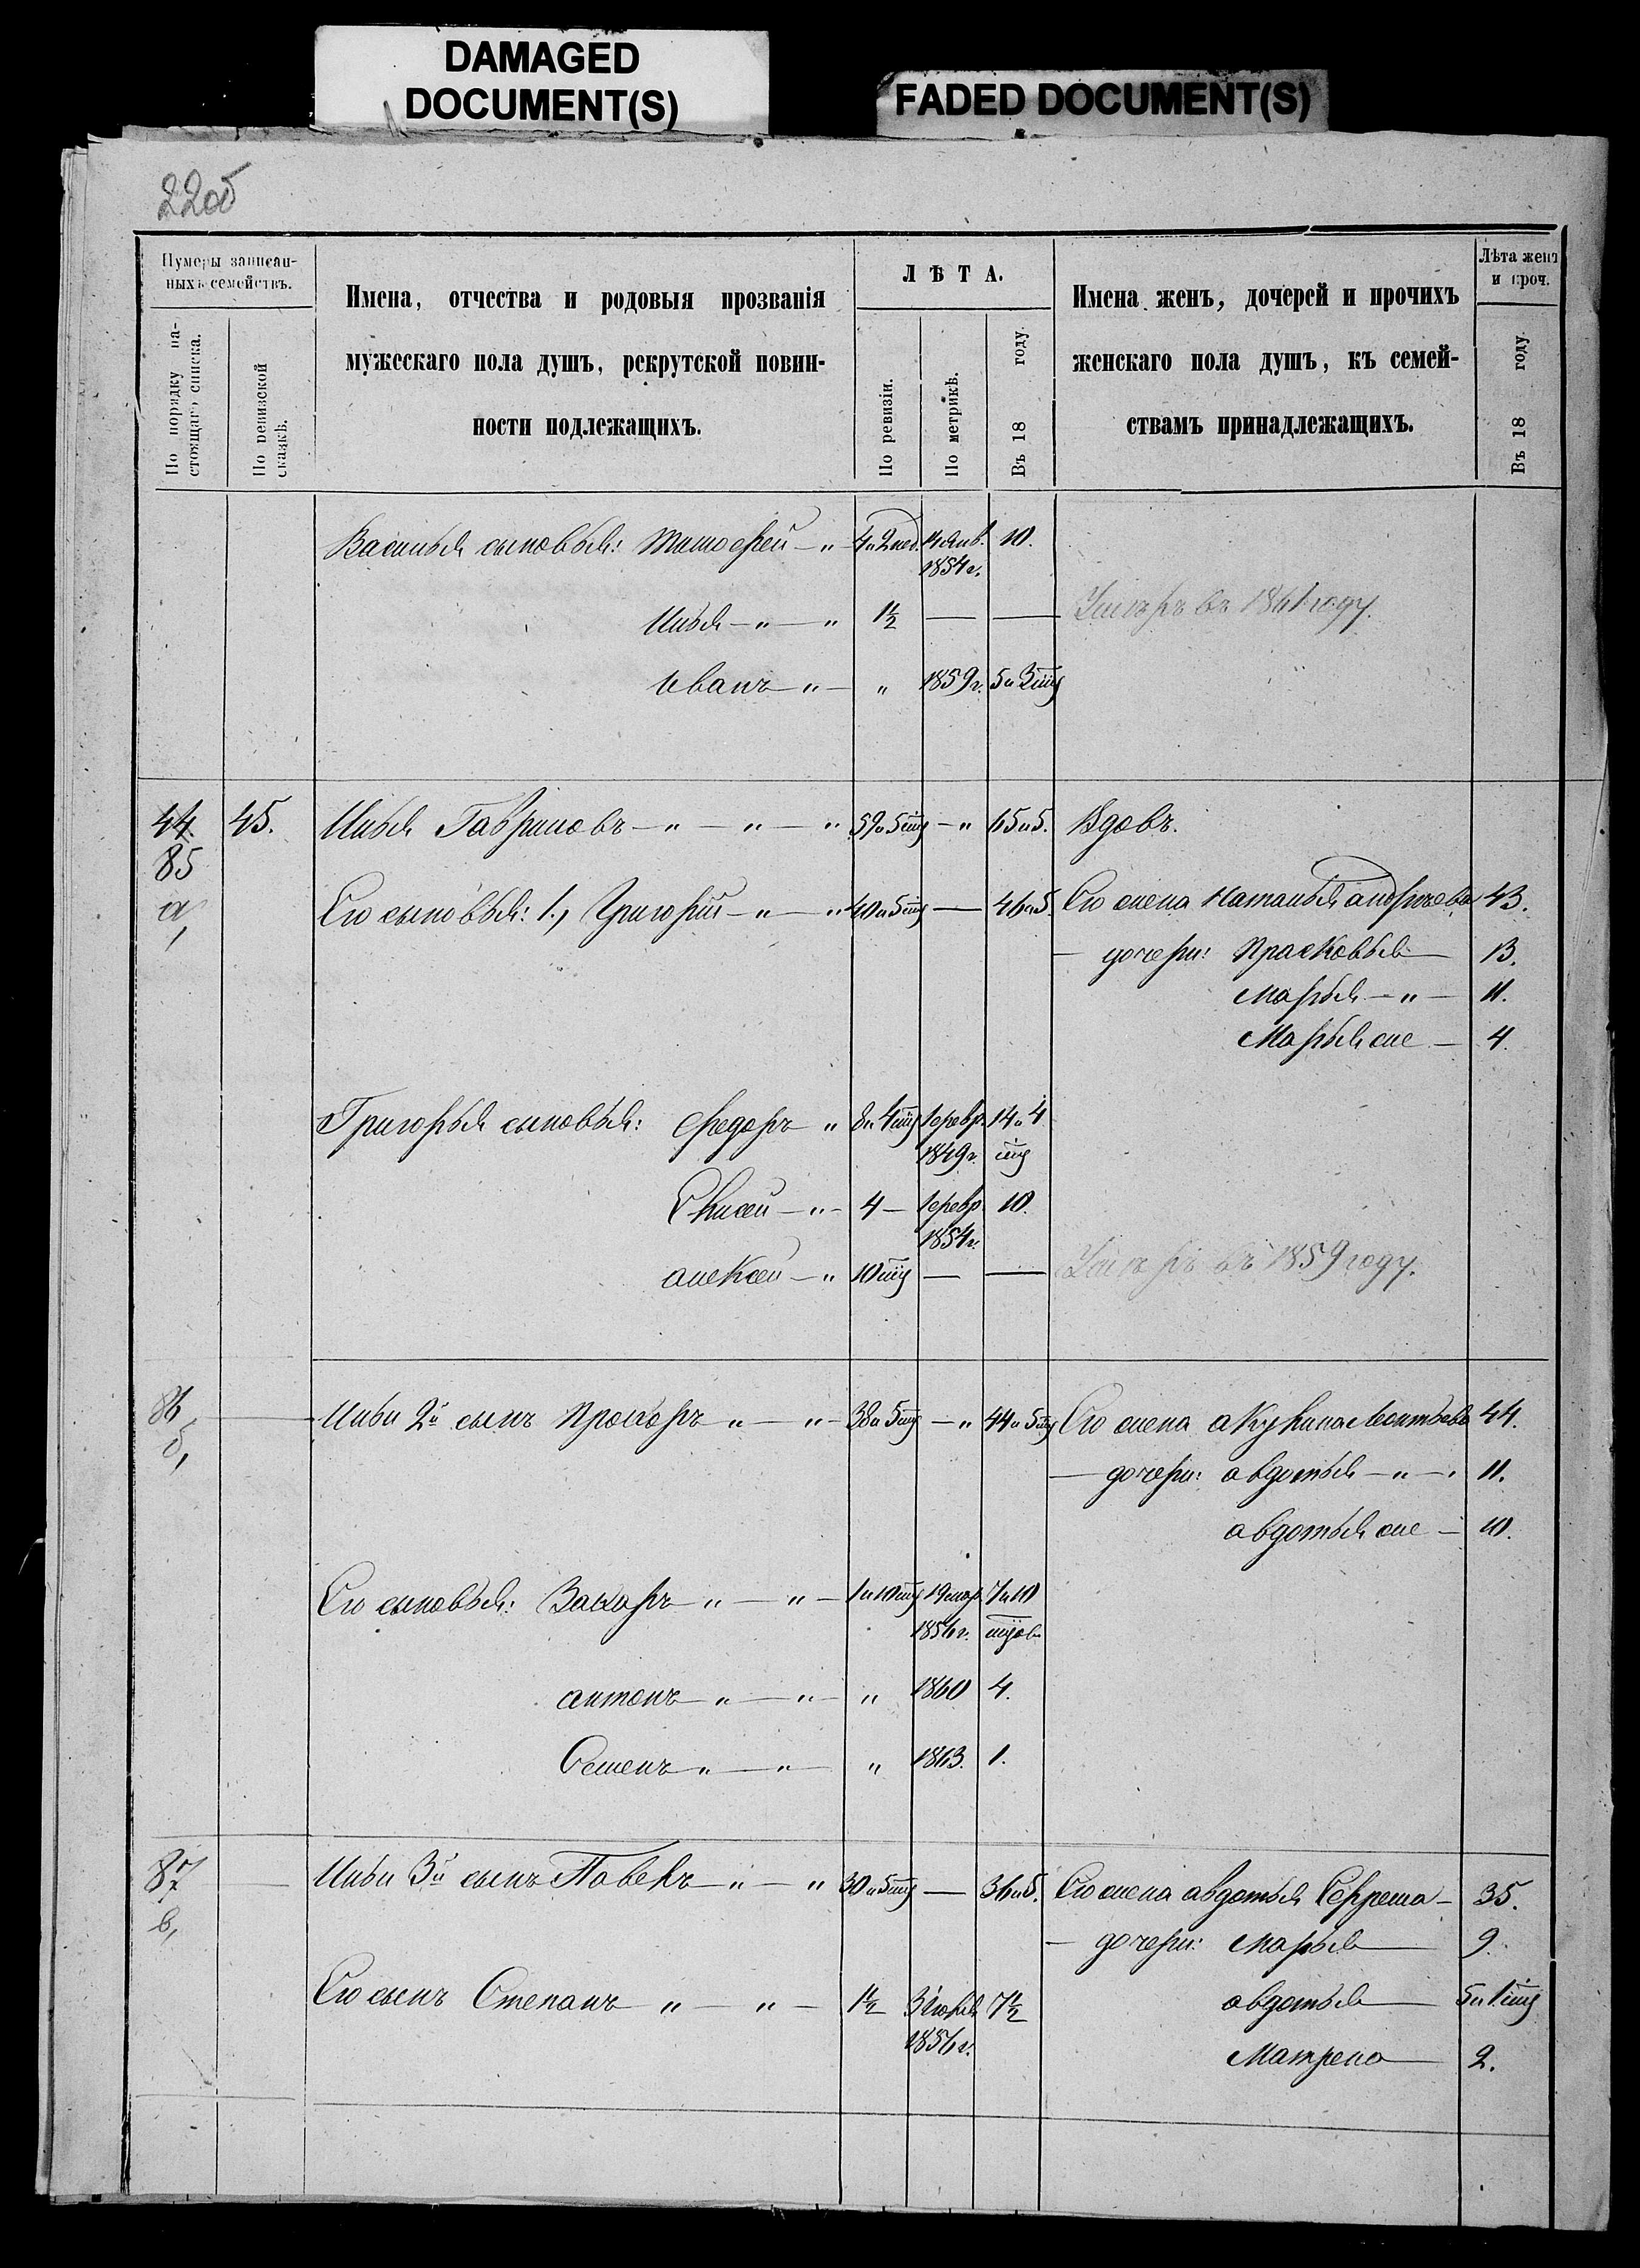 DAMAGED
DOCUMENT(S)
FADED DOCUMENT(S)
22об
Нумеры записан-
ныхъ семействъ.
По порядку на-
стоящаго списка.
По ревизской
сказкѣ.
Имена, отчества и родовыя прозванія
мужескаго пола душъ, рекрутской повин-
ности подлежащихъ.
ЛѢТА.
По ревизіи.
По метрикѣ.
Въ 18 году.
Имена женъ, дочерей и прочихъ
женскаго пола душъ, къ семей-
ствамъ принадлежащихъ.
Лѣта женъ
и проч.
Въ 18 году.
Василья сыновья: Тимофей — " — 4 и 2 нед. 14 янв. 1854 г. 10.
Илья — " — " 1½ — — Умеръ въ 1861 году.
Иванъ " — " 1859 г. 5 и 3 мц
44. 45. Илья Гавриловъ — " — " — " 59 и 5 мц — " 65 и 5. Вдовъ.
85
а, Его сыновья: 1., Григорій — " — " 40 и 5 мц — 46 и 5. Его жена Наталья Андреева 43.
— дочери: Прасковья — 13.
Марья — " — 11.
Марья же — 4.
Григорья сыновья: Федоръ " 8 и 4 мц 1 февр. 1849 г. 14 и 4 мц
Елисей — " — 4 — 1 февр. 1854 г. 10.
Алексей — " 10 мц — — Умеръ въ 1859 году.
86
б, Ильи 2й сынъ Прохоръ " — " — 38 и 5 мц — " 44 и 5 мц Его жена Акулина Леонтьева 44.
— дочери: Авдотья — " — " 11.
Авдотья же — 10.
Его сыновья: Захаръ " — " — 1 и 10 мц 19 мар. 1856 г. 7 и 10 мцов
Антонъ " — " — " 1860 4.
Семенъ " — " — " 1863. 1.
87
в, Ильи 3й сынъ Павелъ — " — " 30 и 5 мц — 36 и 5. Его жена Авдотья Ефрема — 35.
— дочери: Марья — 9.
Его сынъ Степанъ " — " — 1½ 3 1856 г. 7½ Авдотья — 5 и 1 мц
Матрена — 2.